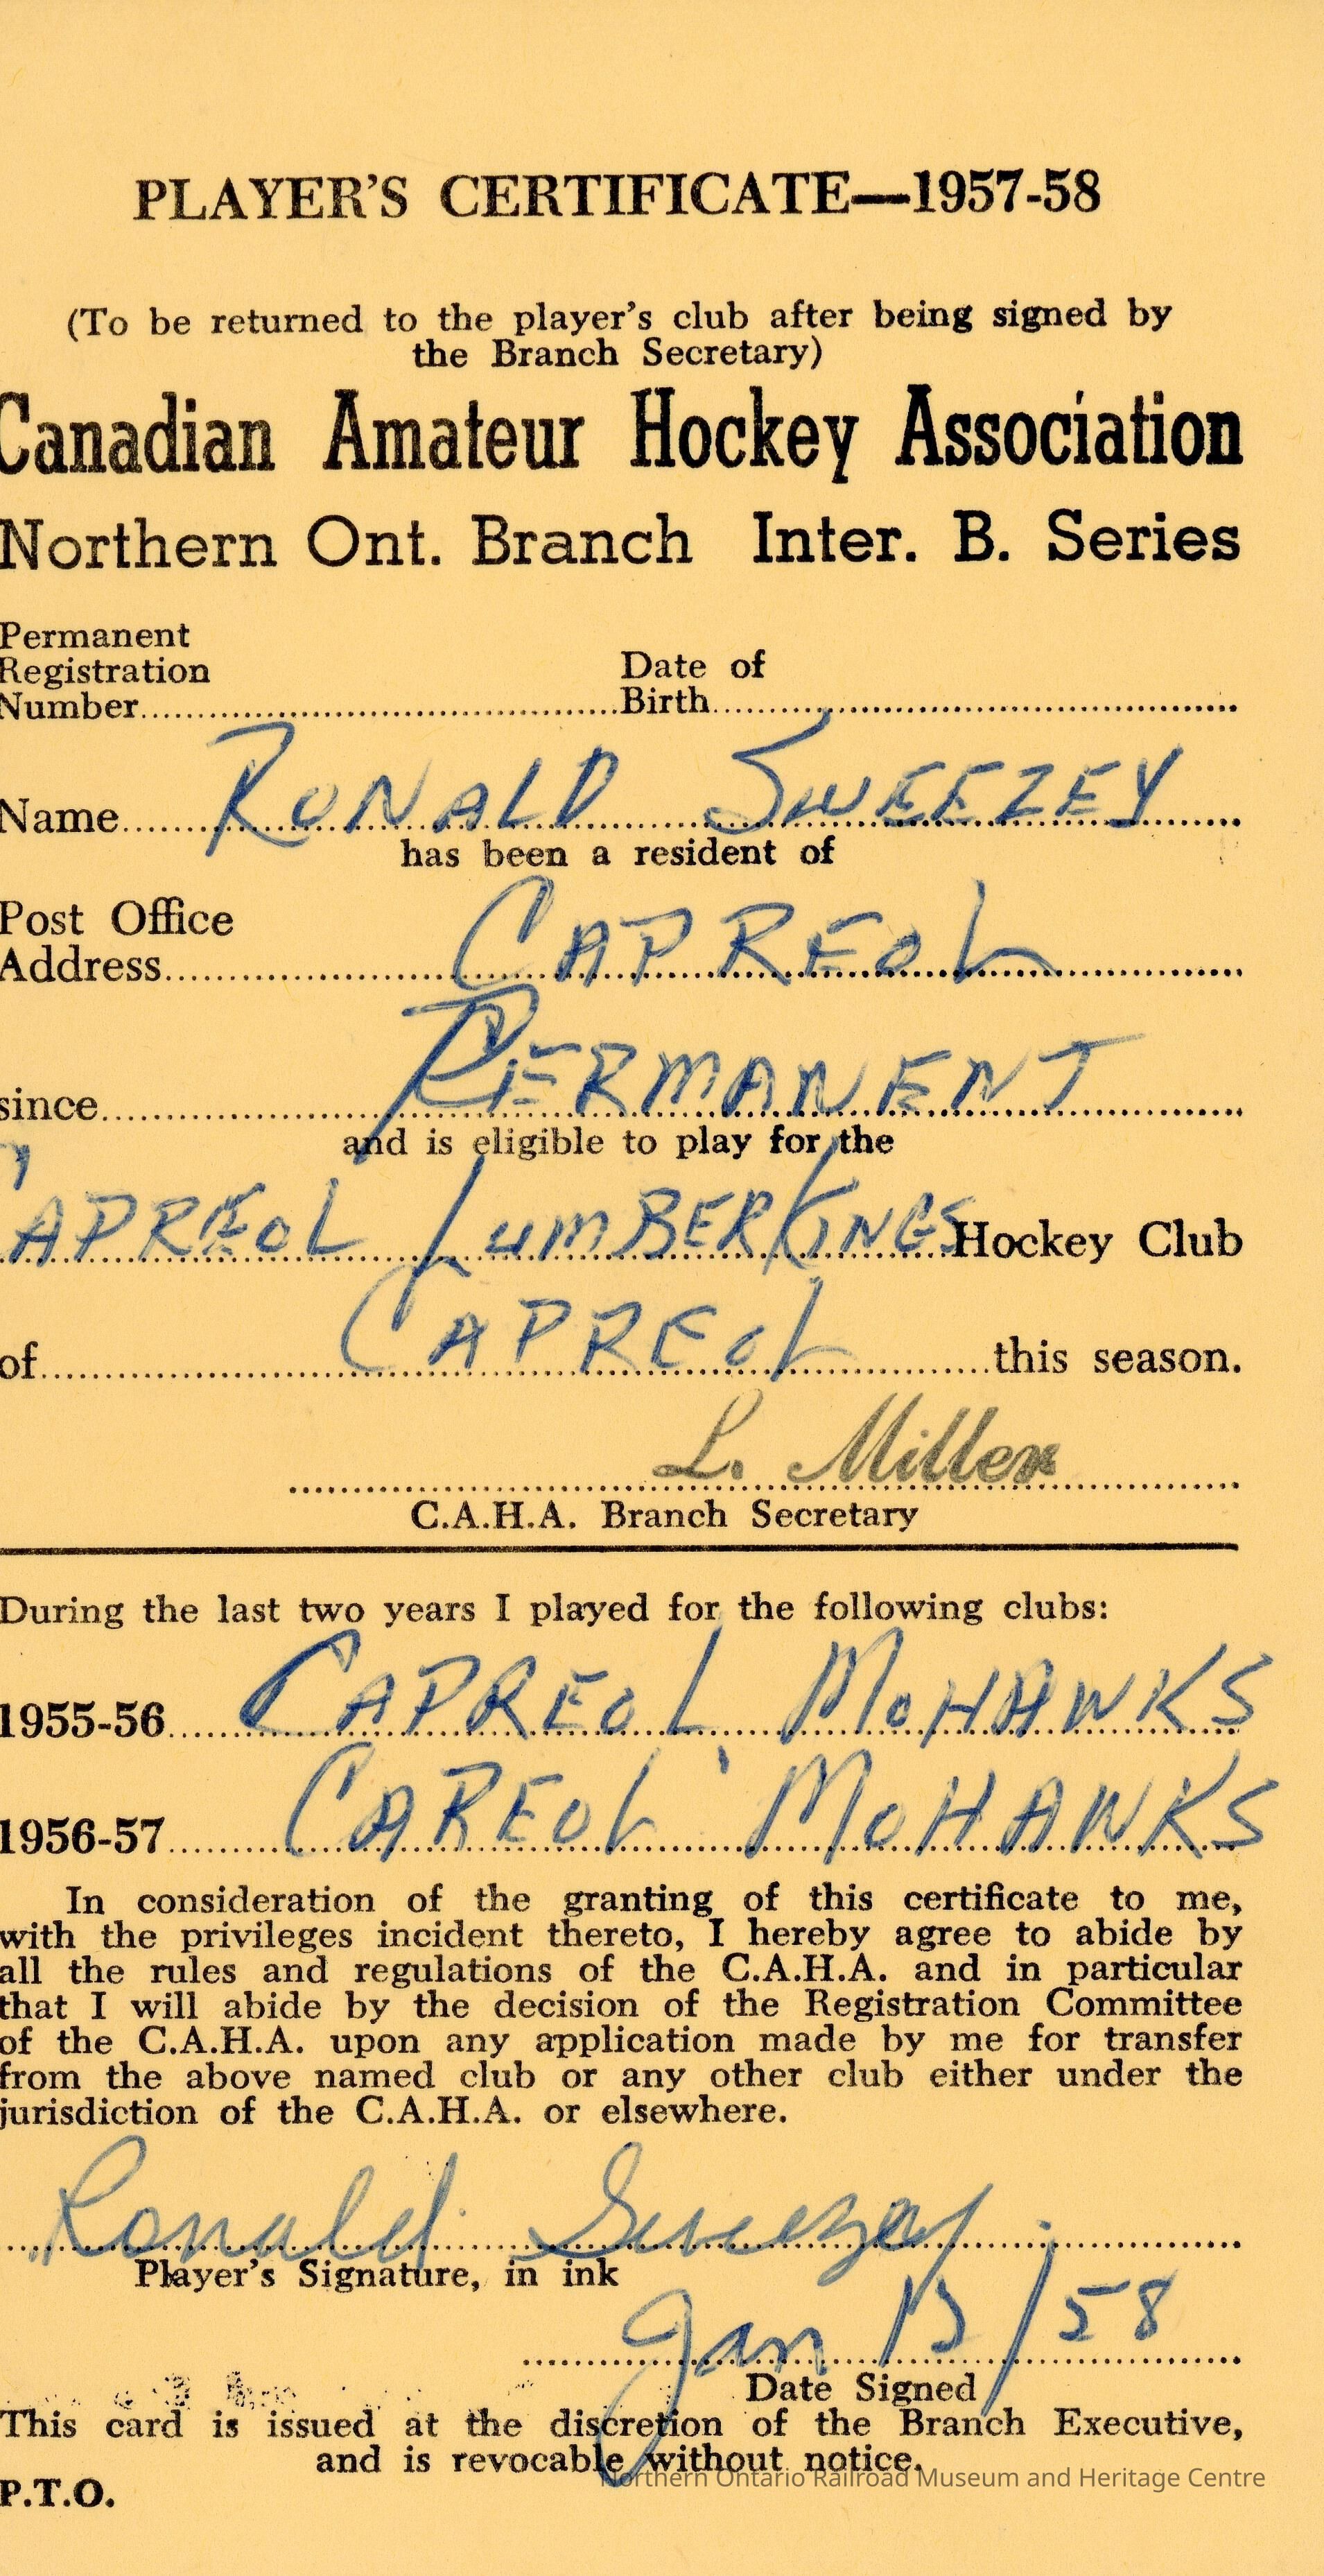 PLAYER'S CERTIFICATE—1957-58
(To be returned to the player's club after being signed by
the Branch Secretary)
Canadian Amateur Hockey Association
Northern Ont. Branch Inter. B. Series
Permanent
Registration
Number
Date of
Birth
Name RONALD SWEEZEY
has been a resident of
Post Office
Address CAPREOL
since PERMANENT
and is eligible to play for the
CAPREOL LUMBERKINGS Hockey Club
of CAPREOL this season.
L. Miller
C.A.H.A. Branch Secretary
During the last two years I played for the following clubs:
1955-56 CAPREOL MOHAWKS
1956-57 CAREOL MOHAWKS
In consideration of the granting of this certificate to me,
with the privileges incident thereto, I hereby agree to abide by
all the rules and regulations of the C.A.H.A. and in particular
that I will abide by the decision of the Registration Committee
of the C.A.H.A. upon any application made by me for transfer
from the above named club or any other club either under the
jurisdiction of the C.A.H.A. or elsewhere.
Ronald Sweezey
Player's Signature, in ink
Jan 13/58
Date Signed
This card is issued at the discretion of the Branch Executive,
and is revocable without notice.
Northern Ontario Railroad Museum and Heritage Centre
P.T.O.